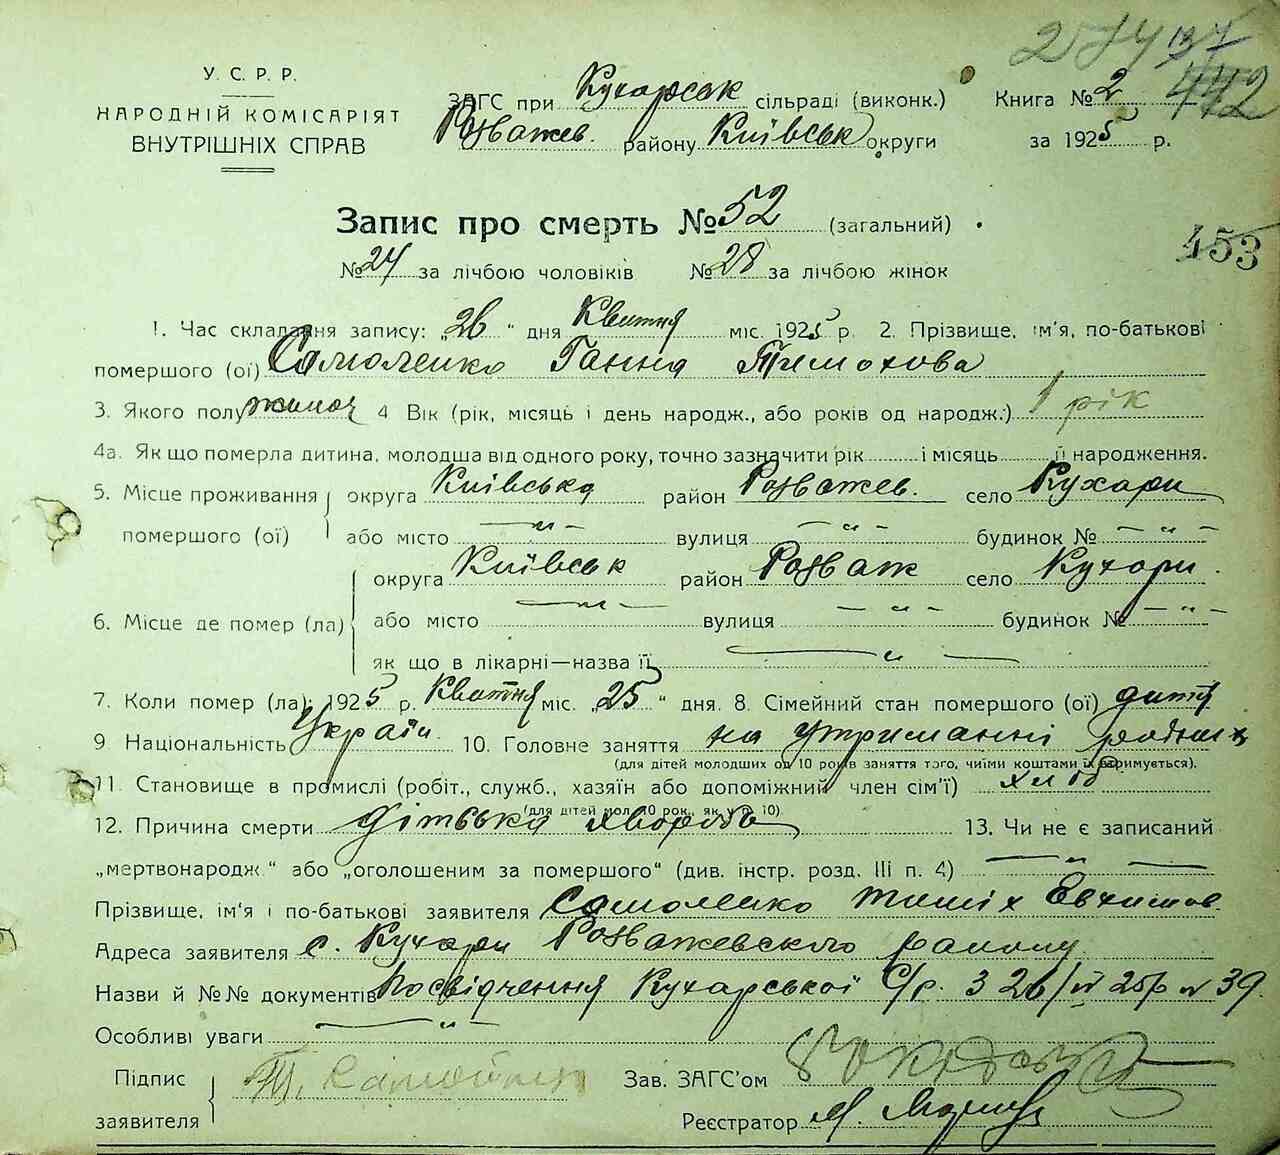 442
У. С. Р. Р.
НАРОДНІЙ КОМІСАРІЯТ
ВНУТРІШНІХ СПРАВ
ЗАГС при Кухарськ сільраді (виконк.) Книга № 2
Розважев. району Київськ округи за 1925 р.
Запис про смерть № 52 (загальний)
453
№ 24 за лічбою чоловіків № 28 за лічбою жінок
1. Час складання запису: „26" дня Квітня міс. 1925 р. 2. Прізвище, ім'я, по-батькові
помершого (ої) Самоленко Ганна Тимохова
3. Якого полу жіноч 4 Вік (рік, місяць і день народж., або років од народж.) 1 рік
4а. Як що померла дитина, молодша від одного року, точно зазначити рік і місяць її народження.
5. Місце проживання округа Київська район Розважев. село Кухари
помершого (ої) або місто — „ — вулиця — „ — будинок № — „ —
округа Київськ район Розваж село Кухари.
6. Місце де помер (ла) або місто — „ — вулиця — „ — будинок № — „ —
як що в лікарні—назва її — „ —
7. Коли помер (ла): 1925 р. Квітня міс. „25" дня. 8. Сімейний стан помершого (ої) дитя
9 Національність Україн. 10. Головне заняття на утриманні родних
(для дітей молодших од 10 років заняття того, чиїми коштами їх утримується).
11. Становище в промислі (робіт., служб., хазяїн або допоміжний член сім'ї) хліб
(для дітей мол. 10 рок., як у п. 10)
12. Причина смерти дітська хвороба 13. Чи не є записаний
„мертвонародж." або „оголошеним за помершого" (див. інстр. розд. III п. 4) — „ —
Прізвище, ім'я і по-батькові заявителя Самоленко Тиміх Евхимов.
Адреса заявителя с. Кухари Розважевского району
Назви й №№ документів Посвідчення Кухарської С/р. З 26/IV 25 р № 39.
Особливі уваги — „ —
Підпис заявителя Т. Зав. ЗАГС'ом
Реєстратор М.